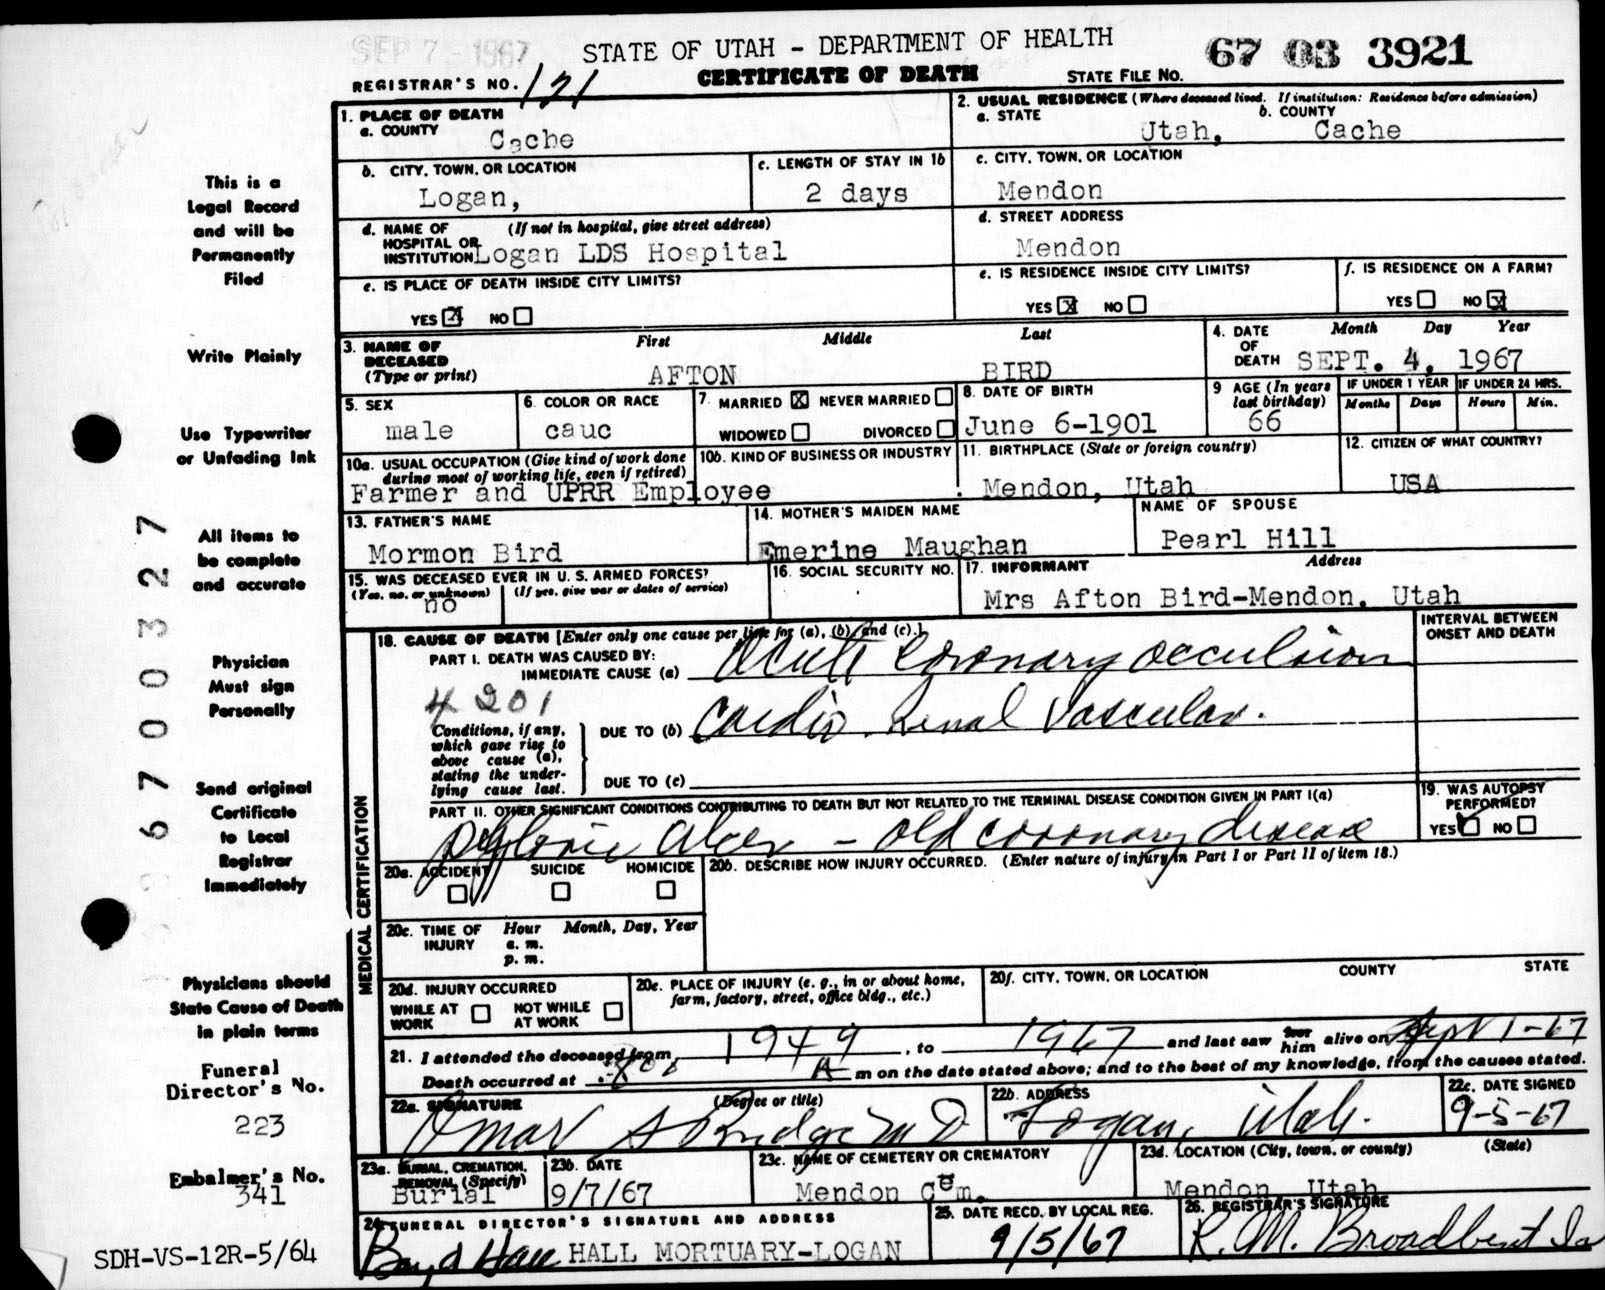 SEP 7 - 1967
STATE OF UTAH - DEPARTMENT OF HEALTH
67 03 3921
REGISTRAR'S NO. 121
CERTIFICATE OF DEATH
STATE FILE NO.
This is a
Legal Record
and will be
Permanently
Filed
Write Plainly
Use Typewriter
or Unfading Ink
All items to
be complete
and accurate
Physician
Must sign
Personally
Send original
Certificate
to Local
Registrar
Immediately
Physicians should
State Cause of Death
in plain terms
Funeral
Director's No.
223
Embalmer's No.
341
SDH-VS-12R-5/64
6700327
1. PLACE OF DEATH
a. COUNTY
Cache
2. USUAL RESIDENCE (Where deceased lived. If institution: Residence before admission)
a. STATE b. COUNTY
Utah, Cache
b. CITY, TOWN, OR LOCATION
Logan,
c. LENGTH OF STAY IN 1b
2 days
c. CITY, TOWN, OR LOCATION
Mendon
d. NAME OF (If not in hospital, give street address)
HOSPITAL OR
INSTITUTION Logan LDS Hospital
d. STREET ADDRESS
Mendon
e. IS PLACE OF DEATH INSIDE CITY LIMITS?
YES X NO
e. IS RESIDENCE INSIDE CITY LIMITS?
YES X NO
f. IS RESIDENCE ON A FARM?
YES NO X
3. NAME OF First Middle Last
DECEASED
(Type or print) AFTON BIRD
4. DATE Month Day Year
OF
DEATH SEPT. 4, 1967
5. SEX
male
6. COLOR OR RACE
cauc
7. MARRIED X NEVER MARRIED
WIDOWED DIVORCED
8. DATE OF BIRTH
June 6-1901
9 AGE (In years
last birthday)
66
IF UNDER 1 YEAR IF UNDER 24 HRS.
Months Days Hours Min.
10a. USUAL OCCUPATION (Give kind of work done
during most of working life, even if retired)
10b. KIND OF BUSINESS OR INDUSTRY
Farmer and UPRR Employee
11. BIRTHPLACE (State or foreign country)
Mendon, Utah
12. CITIZEN OF WHAT COUNTRY?
USA
13. FATHER'S NAME
Mormon Bird
14. MOTHER'S MAIDEN NAME
Emerine Maughan
NAME OF SPOUSE
Pearl Hill
15. WAS DECEASED EVER IN U. S. ARMED FORCES?
(Yes, no, or unknown) (If yes, give war or dates of service)
no
16. SOCIAL SECURITY NO.
17. INFORMANT Address
Mrs Afton Bird-Mendon, Utah
MEDICAL CERTIFICATION
18. CAUSE OF DEATH [Enter only one cause per line for (a), (b), and (c).]
INTERVAL BETWEEN
ONSET AND DEATH
PART I. DEATH WAS CAUSED BY:
IMMEDIATE CAUSE (a) Acute Coronary occulsion
4201
Conditions, if any,
which gave rise to
above cause (a),
stating the under-
lying cause last.
DUE TO (b) Cardio-Renal Vascular.
DUE TO (c)
PART II. OTHER SIGNIFICANT CONDITIONS CONTRIBUTING TO DEATH BUT NOT RELATED TO THE TERMINAL DISEASE CONDITION GIVEN IN PART I(a)
Pyloric Ulcer - old coronary disease
19. WAS AUTOPSY
PERFORMED?
YES NO
20a. ACCIDENT SUICIDE HOMICIDE
20b. DESCRIBE HOW INJURY OCCURRED. (Enter nature of injury in Part I or Part II of item 18.)
20c. TIME OF Hour Month, Day, Year
INJURY a. m.
p. m.
20d. INJURY OCCURRED
WHILE AT NOT WHILE
WORK AT WORK
20e. PLACE OF INJURY (e. g., in or about home,
farm, factory, street, office bldg., etc.)
20f. CITY, TOWN, OR LOCATION COUNTY STATE
21. I attended the deceased from 1949, to 1967 and last saw her him alive on Sept 1-67
Death occurred at A m on the date stated above; and to the best of my knowledge, from the causes stated.
22a. SIGNATURE (Degree or title)
Omar S Budge M D
22b. ADDRESS
Logan, Utah.
22c. DATE SIGNED
9-5-67
23a. BURIAL, CREMATION,
REMOVAL (Specify)
Burial
23b. DATE
9/7/67
23c. NAME OF CEMETERY OR CREMATORY
Mendon Cem.
23d. LOCATION (City, town, or county) (State)
Mendon, Utah
24. FUNERAL DIRECTOR'S SIGNATURE AND ADDRESS
Boyd Hall HALL MORTUARY-LOGAN
25. DATE RECD. BY LOCAL REG.
9/5/67
26. REGISTRAR'S SIGNATURE
R. M. Broadbent